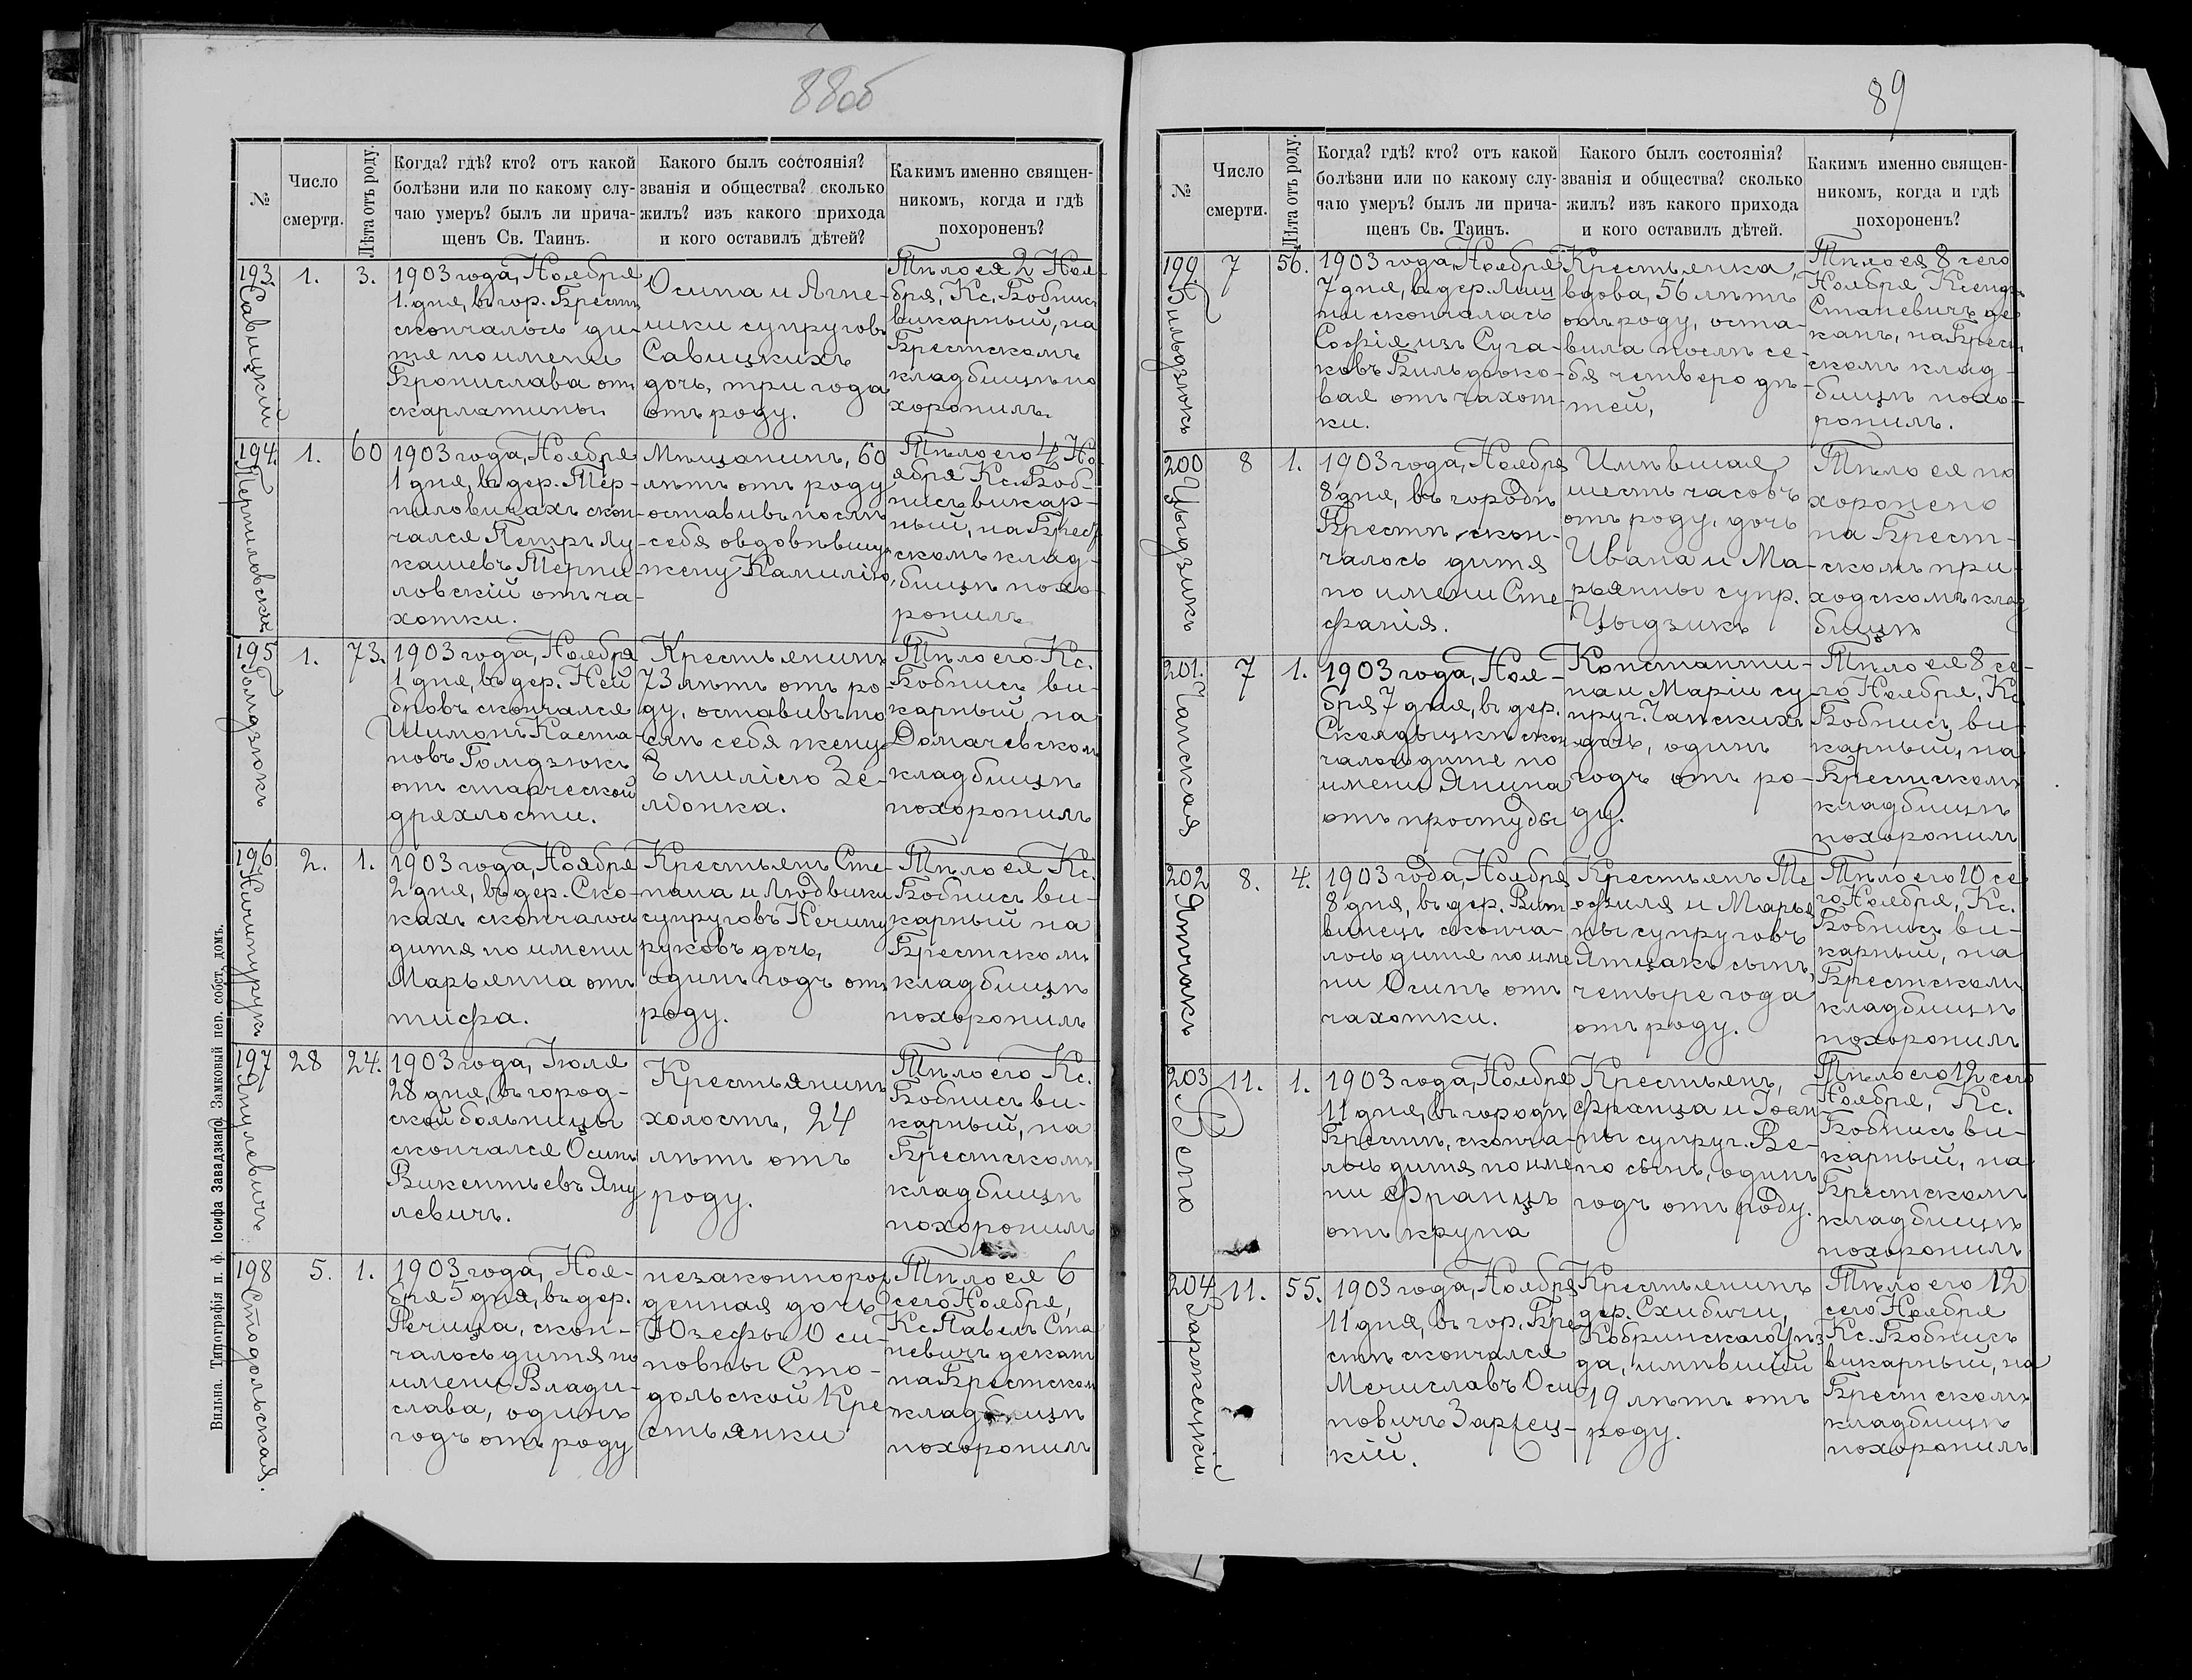 88об
№
Число
смерти.
Лѣта отъ роду.
Когда? гдѣ? кто? отъ какой
болѣзни или по какому слу-
чаю умеръ? былъ ли прича-
щенъ Св. Таинъ.
Какого былъ состоянія?
званія и общества? сколько
жилъ? изъ какого прихода
и кого оставилъ дѣтей?
Какимъ именно священ-
никомъ, когда и гдѣ
похороненъ?
193.
Савицкій
1.
3.
1903 года, Ноября
1. дня, въ гор. Брестѣ
скончалось ди-
тя по имени
Бронислава отъ
скарлатины.
Осипа и Агне-
шки супруговъ
Савицкихъ
дочь, три года
отъ роду.
Тѣло ея 2 Ноя-
бря, Кс. Бобнисъ
викарный, на
Брестскомъ
кладбищѣ по
хоронилъ.
194.
Терпиловскій
1.
60
1903 года, Ноября
1 дня, въ дер. Тер-
пиловичахъ скон-
чался Петръ Лу
кашевъ Терпи-
ловскій отъ ча-
хотки.
Мѣщанинъ, 60
лѣтъ отъ роду
оставивъ послѣ
себя овдовѣвшую
жену Камилію,
Тѣло его 4 Но-
ября Кс. Боб-
нисъ викар-
ный, на Брест
скомъ клад-
бищѣ похо-
ронилъ
195
Гомдзюкъ
1.
73.
1903 года, Ноября
1 дня, въ дер. Ней
бровъ скончался
Шимонъ Каета
новъ Гомдзюкъ
отъ старческой
дряхлости.
Крестьянинъ
73 лѣтъ отъ ро-
ду, оставивъ по
слѣ себя жену
Эмилію Зе-
лѣонка.
Тѣло его Кс.
Бобнисъ ви-
карный на
Домачевскомъ
кладбищѣ
похоронилъ
196
Ничипурукъ
2.
1.
1903 года, Ноября
2 дня, въ дер. Ско-
кахъ скончалось
дитя по имени
Марьянна отъ
тифа.
Крестьянъ Сте-
пана и Людвики
супруговъ Ничипу
руковъ дочь,
одинъ годъ отъ
роду.
Тѣло ея Кс.
Бобнисъ ви-
карный на
Брестскомъ
кладбищѣ
похоронилъ
197
Янулевичъ
28
24.
1903 года, Іюля
28 дня, въ город-
ской больницы
скончался Осипъ
Викентьевъ Яну
левичъ.
Крестьянинъ
холостъ, 24
лѣтъ отъ
роду.
Тѣло его Кс.
Бобнисъ ви-
карный, на
Брестскомъ
кладбищѣ
похоронилъ
198
Стодольская.
5.
1.
1903 года, Ноя-
бря 5 дня, въ дер.
Речица, скон-
чалось дитя по
имени Влади-
слава, одинъ
годъ отъ роду
незаконнорож
денная дочь
Юзефы Оси-
повны Сто-
дольской Кре
стьянки
Тѣло ея 6
сего Ноября,
Кс Павелъ Ста
невичъ деканъ
на Брестском
кладбищѣ
похоронилъ
Вильна. Типографія п. ф. Іосифа Завадзкаго Замковый пер. собст. домъ.
89
№
Число
смерти.
Лѣта отъ роду.
Когда? гдѣ? кто? отъ какой
болѣзни или по какому слу-
чаю умеръ? былъ ли прича-
щенъ Св. Таинъ.
Какого былъ состоянія?
званія и общества? сколько
жилъ? изъ какого прихода
и кого оставилъ дѣтей.
Какимъ именно священ-
никомъ, когда и гдѣ
похороненъ?
199
Бильдзюкъ
7
56.
1903 года, Ноября
7 дня, въ дер. Лищ
ни скончалась
Софія изъ Суга-
ковъ Бильдзюко-
вая отъ чахот-
ки.
Крестьянка,
вдова, 56 лѣтъ
отъ роду, оста-
вила послѣ се-
бя четверо дѣ-
тей,
Тѣло ея 8 сего
Ноября Ксендзъ
Станевичъ де
канъ, на Брест
скомъ клад-
бищѣ похо-
ронилъ.
200
Цыдзикъ
8
1.
1903 года, Ноября
8 дня, въ городѣ
Брестѣ, скон-
чалось дитя
по имени Сте
фанія.
Имѣвшая
шесть часовъ
отъ роду, дочь
Ивана и Ма-
рьянны супр.
Цыдзикъ
Тѣло ея по
хоронено
на Брест-
скомъ при-
ходскомъ клад
бищѣ
201.
Чапская
7
1.
1903 года, Ноя-
бря 7 дня, въ дер.
скон
чалось дитя по
имени Янина
отъ простуды
Константи-
на и Маріи су
пруг. Чапскихъ
дочь, одинъ
годъ отъ ро-
ду.
Тѣло ея 8 се-
го Ноября, Кс
Бобнисъ, ви-
карный, на
Брестскомъ
кладбищѣ
похоронилъ
202
Ятчакъ
8.
4.
1903 года, Ноября
8 дня, въ дер. Вит
винец сконча-
лось дитя по име
ни Осипъ отъ
чахотки.
Крестьянъ Те
офиля и Марья
ны супруговъ
Ятцакъ сынъ,
четыре года
отъ роду.
Тѣло его 10 се
го Ноября, Кс.
Бобнисъ ви-
карный, на
Брестскомъ
кладбищѣ
похоронилъ
203
Вего
11.
1.
1903 года, Ноября
11 дня, въ городѣ
Брестѣ, сконча-
лось дитя по име
ни Францъ
отъ крупа
Крестьянъ,
Франца и Іоан-
ны супруг. Ве-
го сынъ, одинъ
годъ отъ роду.
Тѣло его 12 сего
Ноября, Кс.
Бобнисъ ви-
карный, на
Брестскомъ
кладбищѣ
похоронилъ
204
Заржецкій
11.
55.
1903 года, Ноября
11 дня, въ гор. Бре
стѣ скончался
Мечиславъ Оси-
повичъ Заржец-
кій.
Крестьянинъ
дер. Схибичи,
Кобринскаго Уѣз
да, имѣвшій
19 лѣтъ отъ
роду.
Тѣло его 12
сего Ноября
Кс. Бобнисъ
викарный, на
Брестскомъ
кладбищѣ
похоронилъ